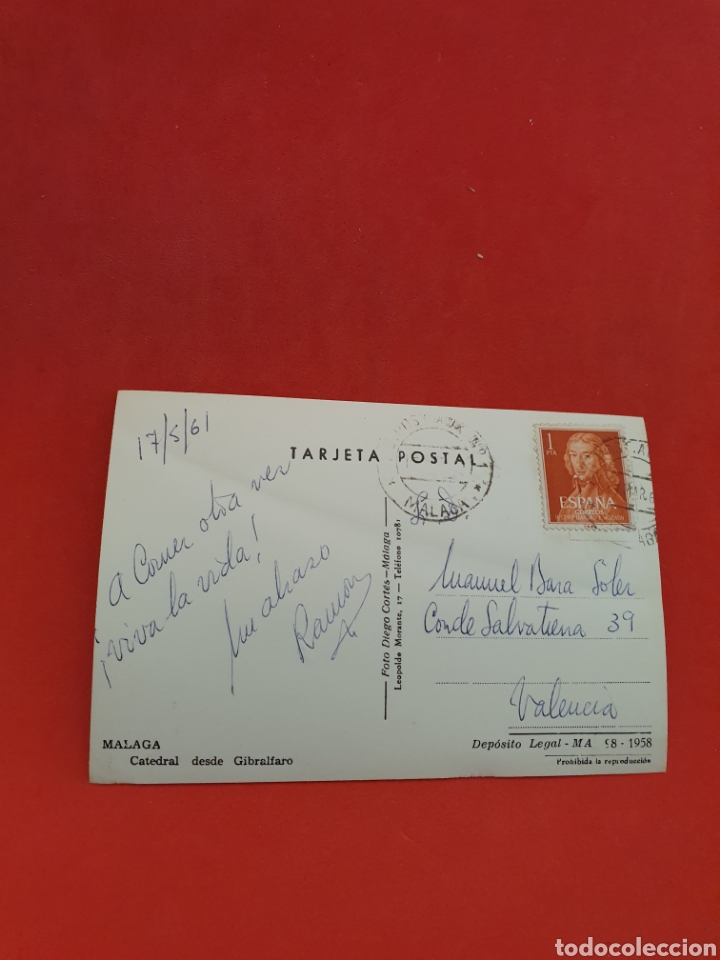 17/5/61
TARJETA POSTAL
A Comer otra vez
¡viva la vida!
Un abrazo
Ramón
MALAGA
Catedral desde Gibralfaro
Foto Diego Cortés - Málaga
Leopoldo Morante, 17 - Teléfono 10781
MALAGA
1
PTA
ESPAÑA
CORREOS
Sr. D.
Manuel Bara Soler
Conde Salvatierra 39
Valencia
Depósito Legal - MA 98 - 1958
Prohibida la reproducción
todocoleccion